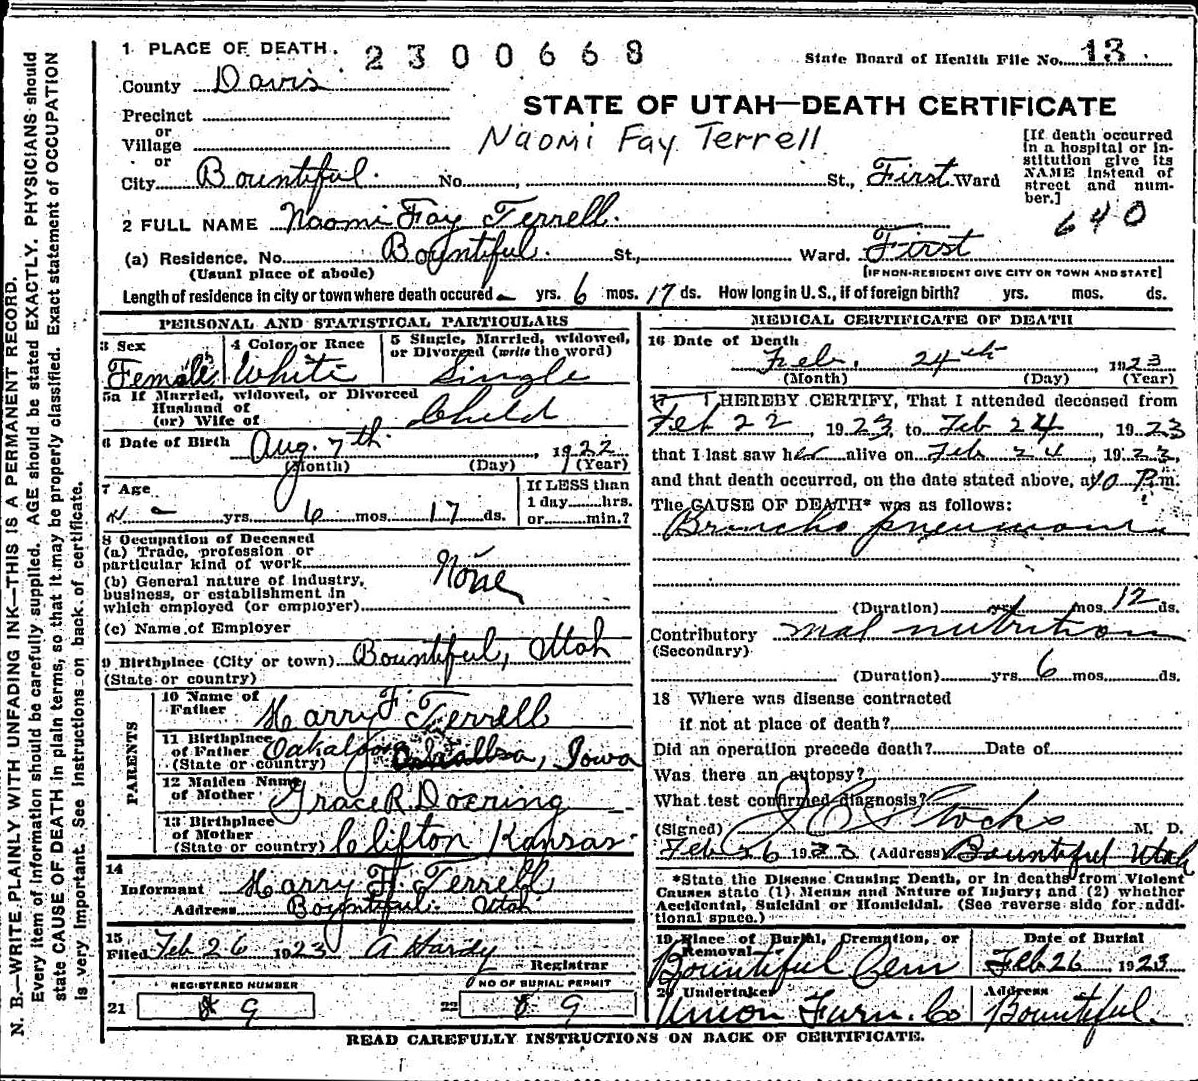 N. B.—WRITE PLAINLY WITH UNFADING INK—THIS IS A PERMANENT RECORD.
Every item of information should be carefully supplied. AGE should be stated EXACTLY. PHYSICIANS should
state CAUSE OF DEATH in plain terms, so that it may be properly classified. Exact statement of OCCUPATION
is very important. See instructions on back of certificate.
1 PLACE OF DEATH. 2300668 State Board of Health File No. 13
County Davis
STATE OF UTAH—DEATH CERTIFICATE
Precinct
or
Village
or
Naomi Fay Terrell
[If death occurred in a hospital or institution give its NAME instead of street and number.]
640
City Bountiful. No. , St., First Ward
2 FULL NAME Naomi Fay Terrell.
(a) Residence. No. Bountiful. St., Ward. First
(Usual place of abode) [IF NON-RESIDENT GIVE CITY OR TOWN AND STATE]
Length of residence in city or town where death occured - yrs. 6 mos. 17 ds. How long in U.S., if of foreign birth? yrs. mos. ds.
PERSONAL AND STATISTICAL PARTICULARS
3 Sex Female
4 Color or Race White
5 Single, Married, widowed, or Divorced (write the word) Single
5a If Married, widowed, or Divorced
Husband of
(or) Wife of Child
6 Date of Birth Aug. 7th. , 1922
(Month) (Day) (Year)
7 Age - yrs. 6 mos. 17 ds.
If LESS than
1 day hrs.
or min.?
8 Occupation of Deceased
(a) Trade, profession or
particular kind of work None
(b) General nature of industry,
business, or establishment in
which employed (or employer)
(c) Name of Employer
9 Birthplace (City or town) Bountiful, Utah
(State or country)
PARENTS
10 Name of Father Harry F. Terrell
11 Birthplace of Father (State or country) Iowa
12 Maiden Name of Mother Grace R. Doering
13 Birthplace of Mother (State or country) Clifton Kansas
14
Informant Harry F. Terrell
Address Bountiful Utah
15
Filed Feb 26 1923 A Hardy
Registrar
REGISTERED NUMBER
21 9
NO OF BURIAL PERMIT
22 9
MEDICAL CERTIFICATE OF DEATH
16 Date of Death
Feb. 24th , 1923
(Month) (Day) (Year)
17 I HEREBY CERTIFY, That I attended deceased from
Feb 22 , 1923, to Feb 24 , 1923
that I last saw her alive on Feb 24 , 1923,
and that death occurred, on the date stated above, at 10 P.m.
The CAUSE OF DEATH* was as follows:
Broncho pneumonia
(Duration) yrs. mos. 12 ds.
Contributory mal nutrition
(Secondary)
(Duration) yrs. 6 mos. ds.
18 Where was disease contracted
if not at place of death?
Did an operation precede death? Date of
Was there an autopsy?
What test confirmed diagnosis?
(Signed) Stocks M. D.
Feb 26 1923 (Address) Bountiful Utah
*State the Disease Causing Death, or in deaths from Violent
Causes state (1) Means and Nature of Injury; and (2) whether
Accidental, Suicidal or Homicidal. (See reverse side for additional space.)
19 Place of Burial, Cremation, or Removal
Bountiful Cem
Date of Burial
Feb 26 1923
20 Undertaker
Union Furn. Co
Address
Bountiful.
READ CAREFULLY INSTRUCTIONS ON BACK OF CERTIFICATE.